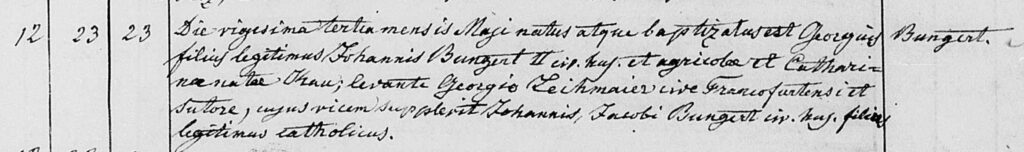 12 23 23 Die vigesima tertia mensis Maji natus atque baptizatus est Georgius Bungert.
filius legitimus Johannis Bungert II civ. huj. et agricolæ et Cathari-
næ natæ Rau; levante Georgio Zeihmaier cive Francofurtensi et
sutore, cujus vicem supplevit Johannis, Jacobi Bungert civ. huj. filius
legitimus catholicus.